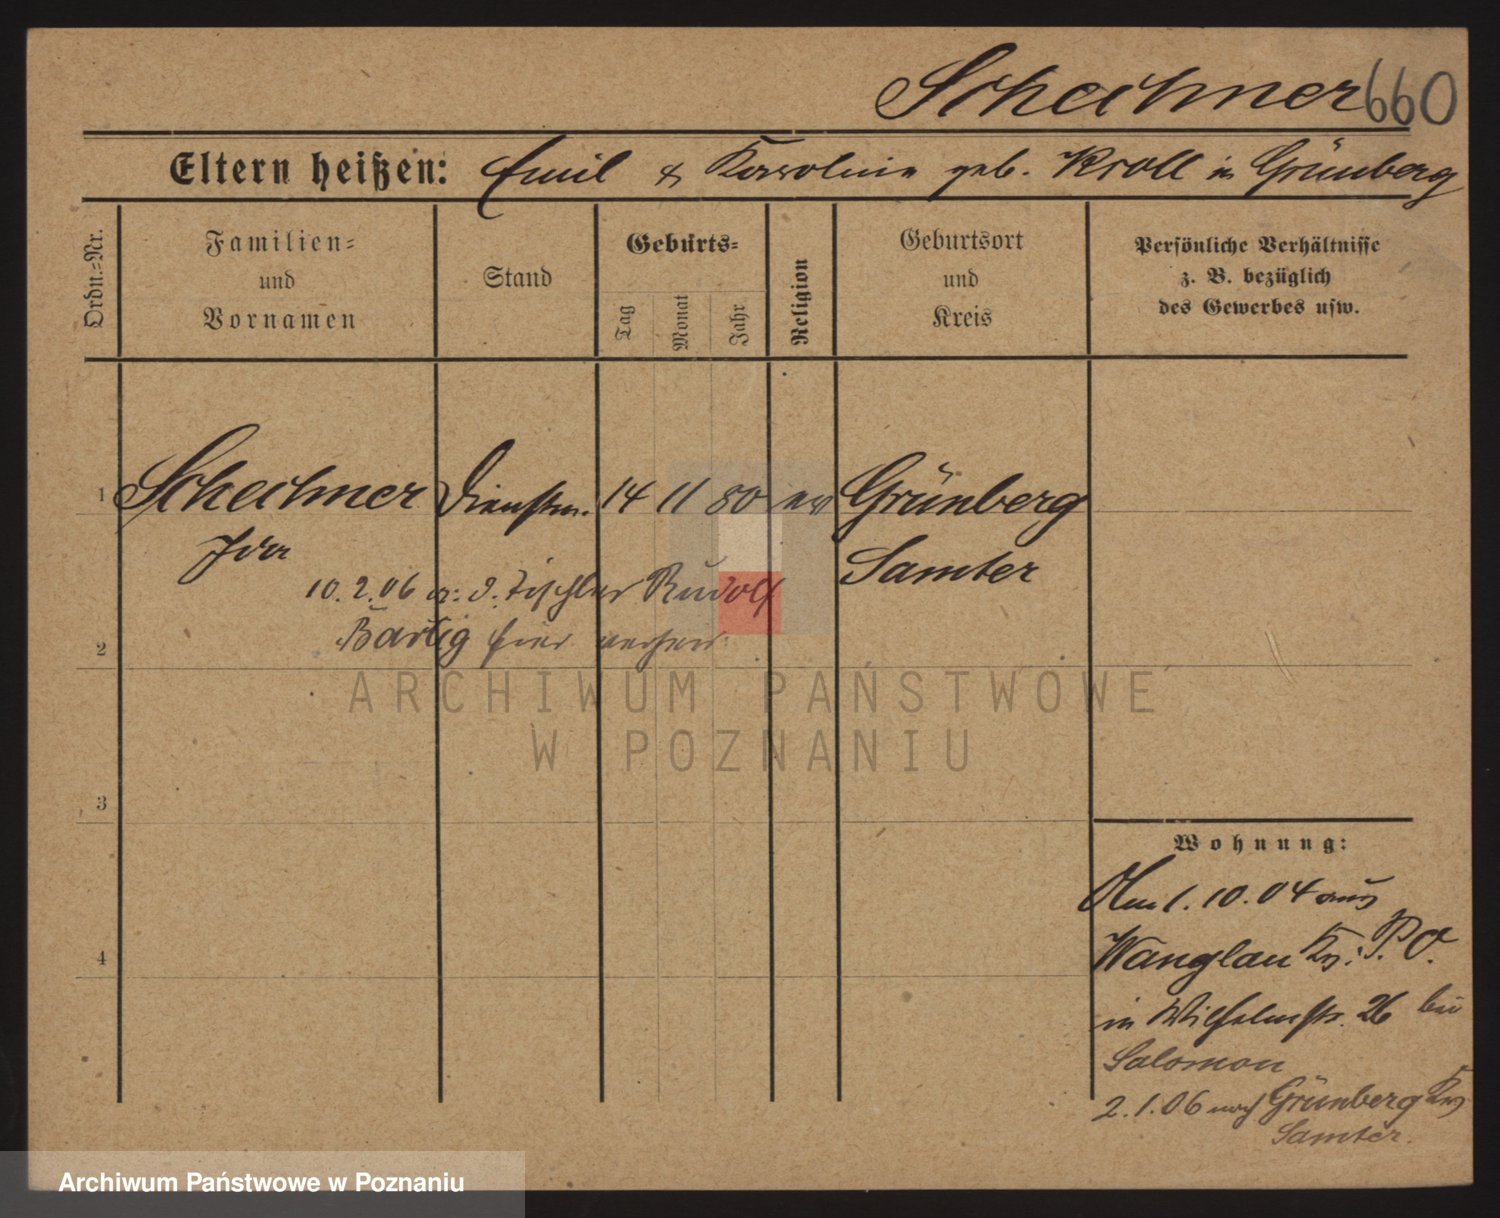 Schechner 660
Eltern heißen: Emil & Karoline geb. Kroll in Grünberg
Ordn.=Nr.
Familien=
und
Vornamen
Stand
Geburts=
Tag
Monat
Jahr
Religion
Geburtsort
und
Kreis
Persönliche Verhältnisse
z. B. bezüglich
des Gewerbes usw.
1 Schechner Dienstm. 14 11 80 ev Grünberg
Ida Samter
10.2.06 a: d. Tischler Rudolf
Bartig hier verheir.
2
3
4
Wohnung:
Am 1.10.04 aus
Wanglau Kr: P. O.
in Wilhelmstr. 26 bei
Salomon
2.1.06 nach Grünberg Krs
Samter.
ARCHIWUM PAŃSTWOWE
W POZNANIU
Archiwum Państwowe w Poznaniu